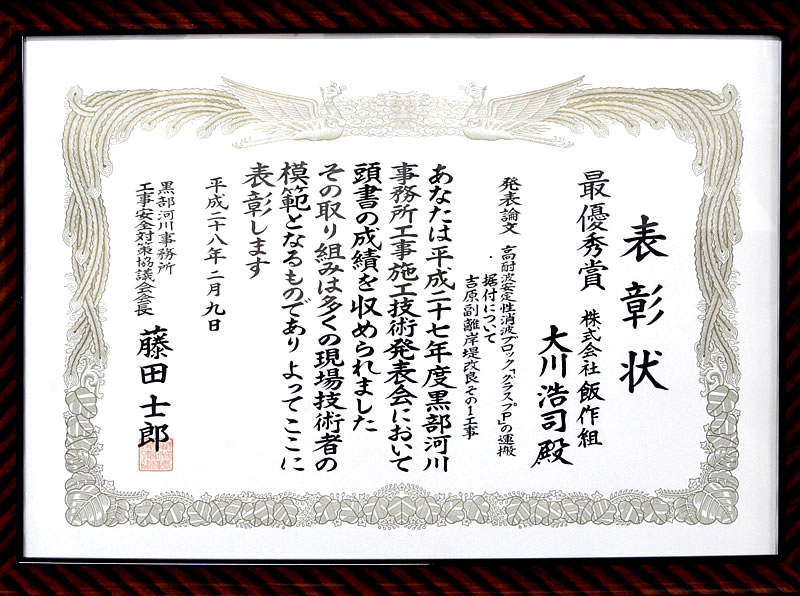 表彰状
最優秀賞
株式会社 飯作組
大川浩司 殿
発表論文 高耐波安定性消波ブロック「グラスプP」の運搬
・据付について
吉原副離岸堤改良その1工事
あなたは平成二十七年度黒部河川
事務所工事施工技術発表会において
頭書の成績を収められました
その取り組みは多くの現場技術者の
模範となるものであり よってここに
表彰します
平成二十八年二月九日
黒部河川事務所
工事安全対策協議会会長
藤田士郎